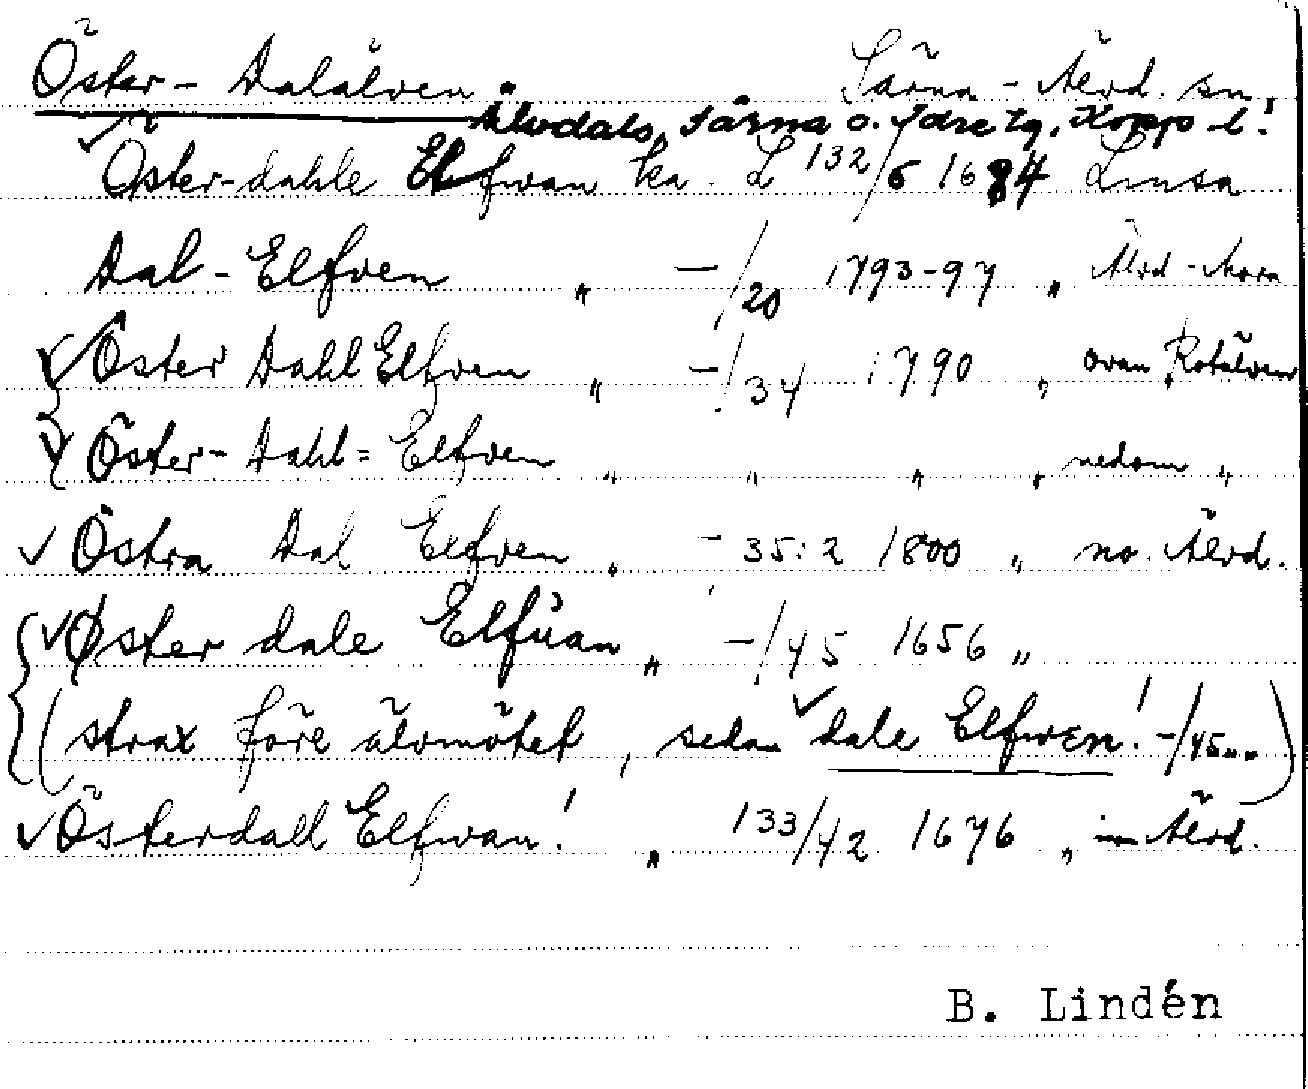 Öster-Dalälven Särna - Älvd. sn.
Älvdals, Särna o. Idre tg, Kopp l!
Öster-dahle Elfwan ka. L 132/6 1684 Limsa
Dal-Elfven " -/20 1793-97 " Älvd-Mora
Öster Dahl Elfven " -/34 1790 " ovan Rotälven
Öster-Dahl=Elfven " " " " nedom "
Östra Dal Elfven " - 35:2 1800 " no. Älvd.
Øster dale Elfúan " -/45 1656 "
(strax före älvmötet, sedan dale Elfwen! -/45...)
Österdall Elfwan! " 133/42 1676 " Älvd.
B. Lindén